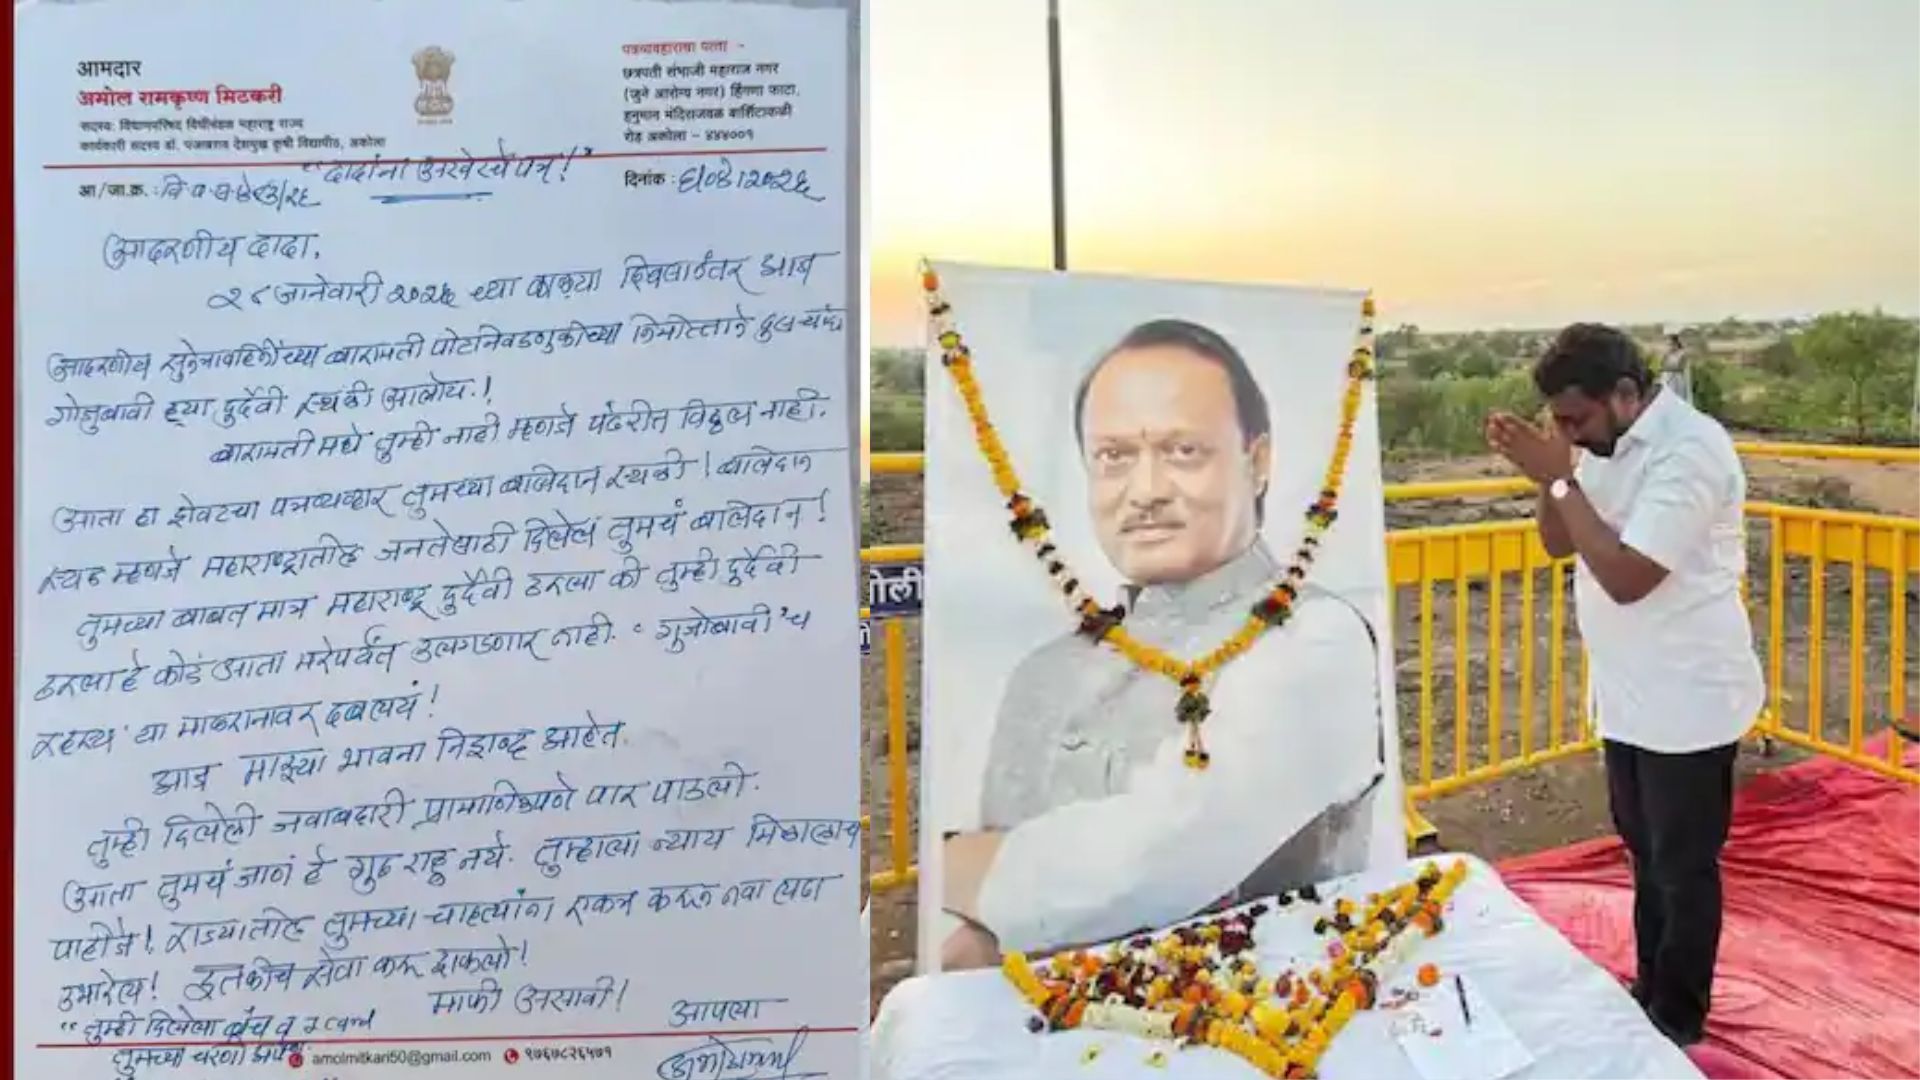 आमदार
अमोल रामकृष्ण मिटकरी
सदस्य: विधानपरिषद विधीमंडळ महाराष्ट्र राज्य
कार्यकारी सदस्य डॉ. पंजाबराव देशमुख कृषी विद्यापीठ, अकोला
पत्रव्यवहाराचा पत्ता -
छत्रपती संभाजी महाराज नगर
(जुने आरोग्य नगर) हिंगणा फाटा,
हनुमान मंदिराजवळ वाशिंटाकळी
रोड अकोला - ४४४००१
"दादांना अखेरचे पत्र!"
आ/जा.क्र. :
दिनांक : ६/०४/२०२६
आदरणीय दादा,
२८ जानेवारी २०२६ च्या काळ्या दिवसानंतर आज
आदरणीय सुनेत्रावहिनींच्या बारामती पोटनिवडणुकीच्या निमीत्ताने
गोजुबावी ह्या दुर्दैवी स्थळी आलोय.!
बारामती मधे तुम्ही नाही म्हणजे पंढरीत विठ्ठल नाही.
आता हा शेवटचा पत्रव्यव्हार तुमच्या बलिदान स्थळी! बलिदान
स्थळ म्हणजे महाराष्ट्रातील जनतेसाठी दिलेलं तुमचं बलिदान!
तुमच्या बाबत मात्र महाराष्ट्र दुर्दैवी ठरला की तुम्ही दुर्दैवी
ठरला हे कोडं आता मरेपर्यंत उलगडणार नाही. "गुजोबावी'च
रहस्य' या माळरानावर दबलयं!
आज माझ्या भावना निशब्द आहेत.
तुम्ही दिलेली जवाबदारी प्रामाणिकपणे पार पाडली.
आता तुमचं जाणं हे गुढ राहू नये. तुम्हाला न्याय मिळालाच
पाहीजे! राज्यातील तुमच्या चाहत्यांना एकत्र करून नवा लढा
उभारेल! इतकीच सेवा करू शकलो!
माफी असावी!
आपला
"तुम्ही दिलेला पेन व
तुमच्या चरणी अर्पण
amolmitkari50@gmail.com ९७६७८२६५७१
ोली